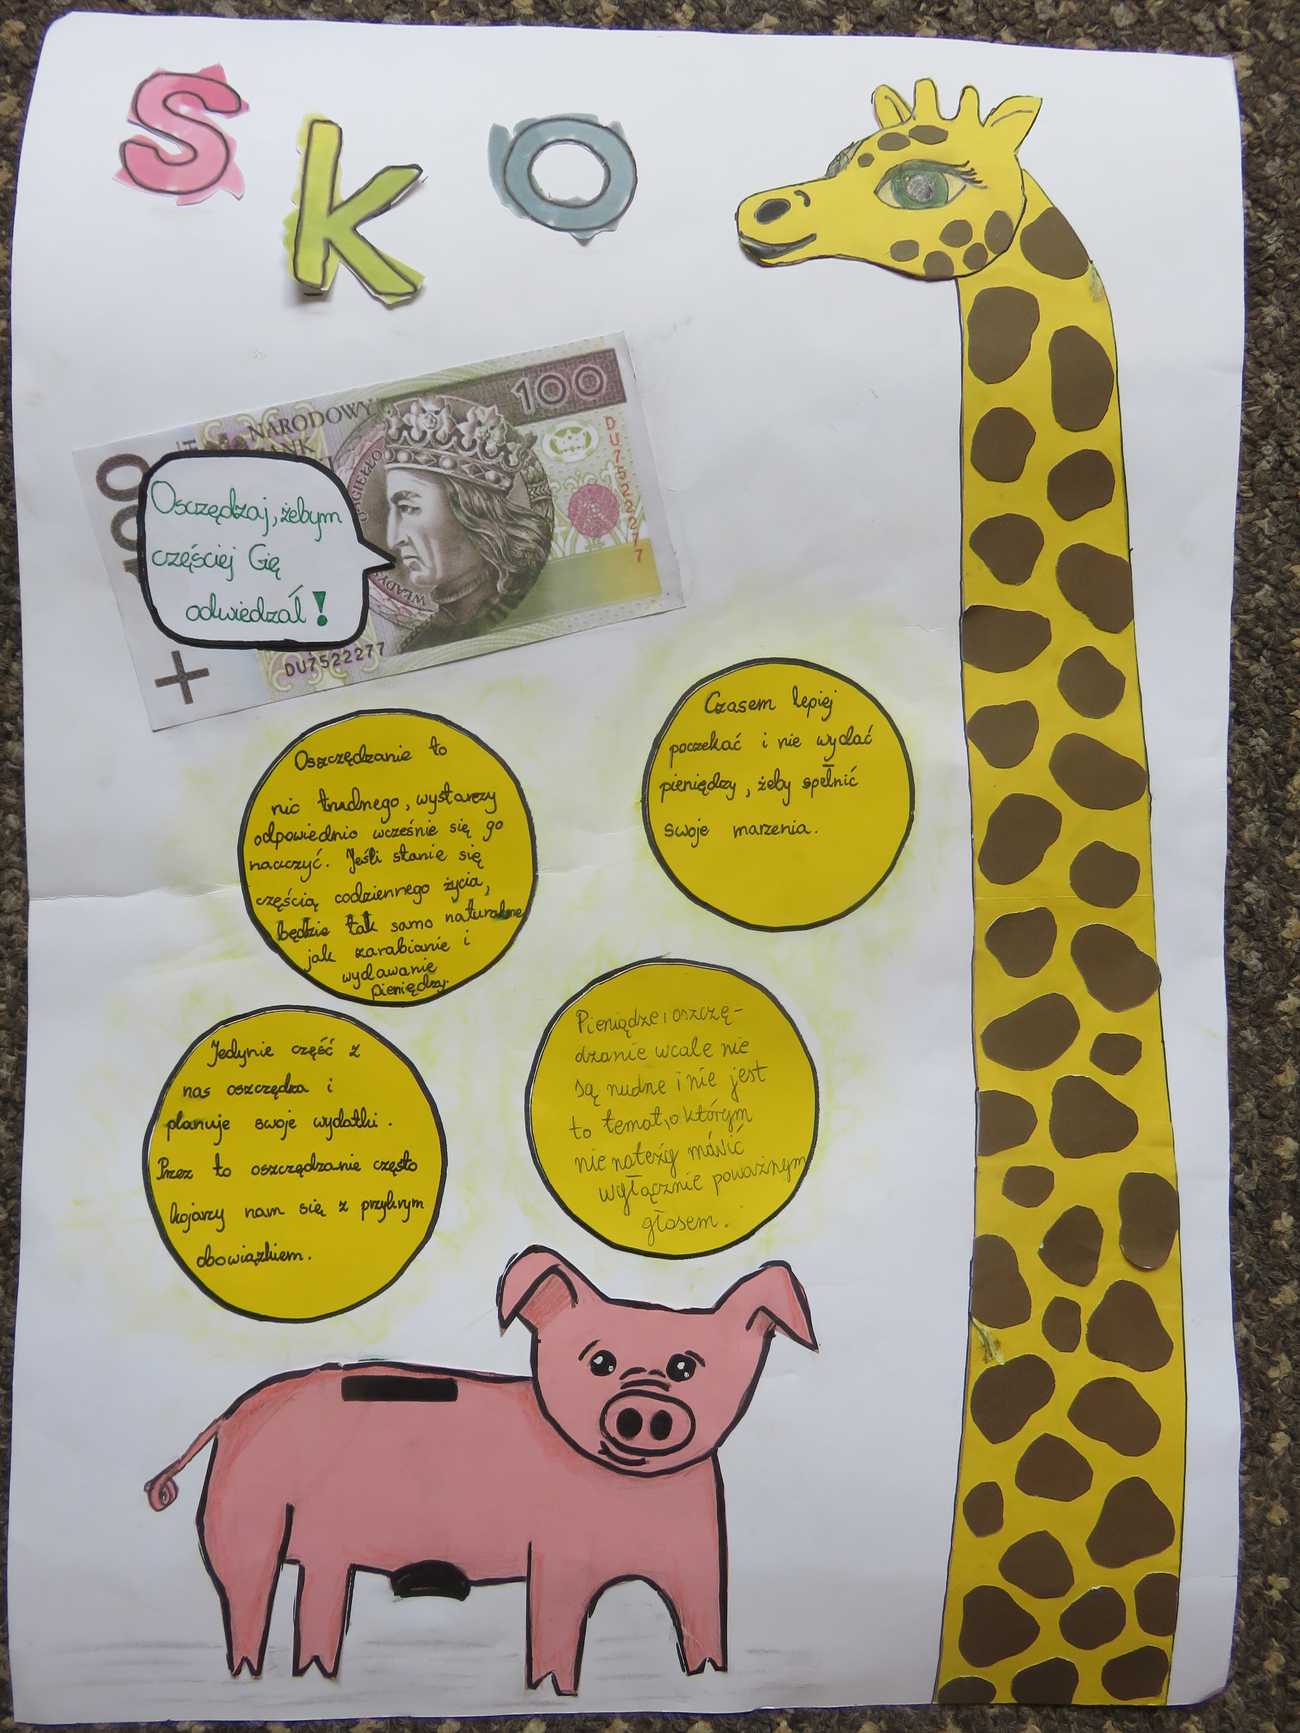 SKO
100
NARODOWY
100
DU7522277
WŁADY
DU7522277
Oszczędzaj, żebym
częściej Cię
odwiedzał!
Oszczędzanie to
nic trudnego, wystarczy
odpowiednio wcześnie się go
nauczyć. Jeśli stanie się
częścią codziennego życia,
będzie tak samo naturalne
jak zarabianie i
wydawanie
pieniędzy.
Czasem lepiej
poczekać i nie wydać
pieniędzy, żeby spełnić
swoje marzenia.
Jedynie część z
nas oszczędza i
planuje swoje wydatki.
Przez to oszczędzanie często
kojarzy nam się z przykrym
obowiązkiem.
Pieniądze i oszczę-
dzanie wcale nie
są nudne i nie jest
to temat, o którym
nie należy mówić
wyłącznie poważnym
głosem.